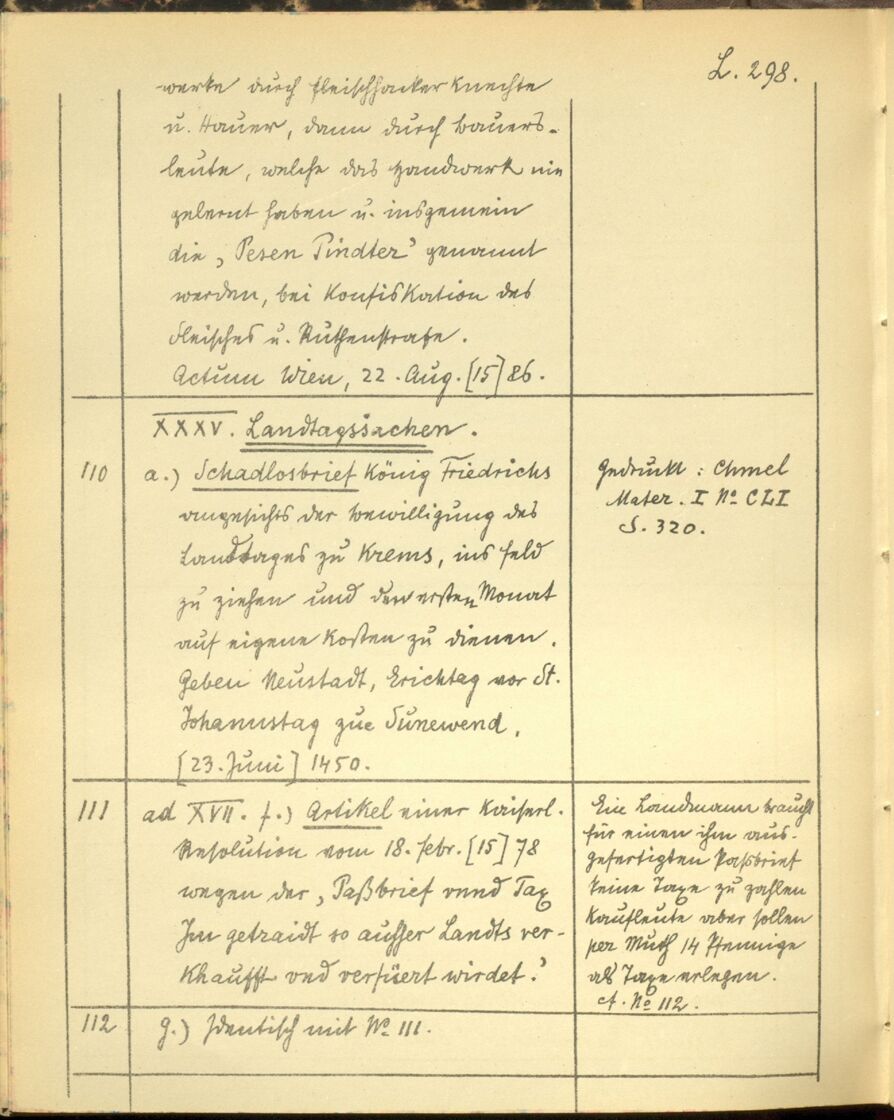 L. 298.
werke durch Fleischhacker Knechte
u. Hauer, dann durch Bauers-
leute, welche das Handwerk nie
gelernt haben u. insgemein
die „Pesen Pindter" genannt
werden, bei Konfiskation des
Fleisches u. Ruthenstrafe.
Actum Wien, 22. Aug. [15]86.
XXXV. Landtagssachen.
110 a.) Schadlosbrief König Friedrichs
angesichts der Bewilligung des
Landtages zu Krems, ins Feld
zu ziehen und den ersten Monat
auf eigene Kosten zu dienen.
Geben Neustadt, Erichtag vor St.
Johannstag zue Sunewend,
[23. Juni] 1450.
Gedruckt: Chmel
Mater. I No CLI
S. 320.
111 ad XVII. f.) Artikel einer Kaiserl.
Resolution vom 18. Febr. [15]78
wegen der „Paßbrief vnnd Tax
Im getraidt so ausser Landts ver-
khaufft vnd verfüert wirdet."
Ein Landmann braucht
für einen ihm aus-
gefertigten Paßbrief
keine Taxe zu zahlen
Kaufleute aber sollen
per Muth 14 Pfennige
als Taxe erlegen.
cf. No 112.
112 g.) Identisch mit No 111.